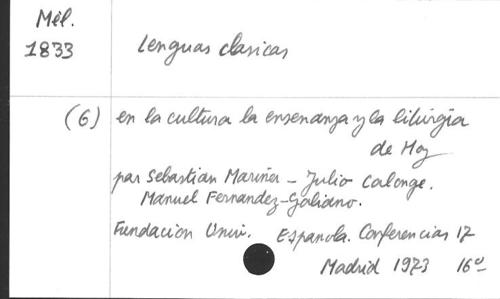 Mél.
1833
Lenguas clasicas
(6) en la cultura la ensenanza y la liturgia
de Hoy
par Sebastian Mariner - Julio Calonge.
Manuel Fernandez-Galiano.
Fundacion Univ. Espanola. Conferencias 17
Madrid 1973 16º